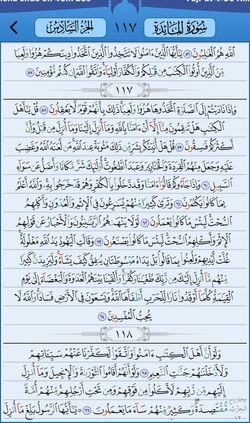 سورة المائدة ١١٧ الجزء السادس
ٱللَّهِ هُمُ ٱلْغَٰلِبُونَ ٥٦ يَٰٓأَيُّهَا ٱلَّذِينَ ءَامَنُوا۟ لَا تَتَّخِذُوا۟ ٱلَّذِينَ ٱتَّخَذُوا۟ دِينَكُمْ هُزُوًا وَلَعِبًا
مِّنَ ٱلَّذِينَ أُوتُوا۟ ٱلْكِتَٰبَ مِن قَبْلِكُمْ وَٱلْكُفَّارَ أَوْلِيَآءَ وَٱتَّقُوا۟ ٱللَّهَ إِن كُنتُم مُّؤْمِنِينَ ٥٧
١١٧
وَإِذَا نَادَيْتُمْ إِلَى ٱلصَّلَوٰةِ ٱتَّخَذُوهَا هُزُوًا وَلَعِبًا ذَٰلِكَ بِأَنَّهُمْ قَوْمٌ لَّا يَعْقِلُونَ ٥٨ قُلْ يَٰٓأَهْلَ
ٱلْكِتَٰبِ هَلْ تَنقِمُونَ مِنَّآ إِلَّآ أَنْ ءَامَنَّا بِٱللَّهِ وَمَآ أُنزِلَ إِلَيْنَا وَمَآ أُنزِلَ مِن قَبْلُ وَأَنَّ
أَكْثَرَكُمْ فَٰسِقُونَ ٥٩ قُلْ هَلْ أُنَبِّئُكُم بِشَرٍّ مِّن ذَٰلِكَ مَثُوبَةً عِندَ ٱللَّهِ مَن لَّعَنَهُ ٱللَّهُ وَغَضِبَ
عَلَيْهِ وَجَعَلَ مِنْهُمُ ٱلْقِرَدَةَ وَٱلْخَنَازِيرَ وَعَبَدَ ٱلطَّٰغُوتَ أُو۟لَٰٓئِكَ شَرٌّ مَّكَانًا وَأَضَلُّ عَن سَوَآءِ
ٱلسَّبِيلِ ٦٠ وَإِذَا جَآءُوكُمْ قَالُوٓا۟ ءَامَنَّا وَقَد دَّخَلُوا۟ بِٱلْكُفْرِ وَهُمْ قَدْ خَرَجُوا۟ بِهِۦ وَٱللَّهُ أَعْلَمُ
بِمَا كَانُوا۟ يَكْتُمُونَ ٦١ وَتَرَىٰ كَثِيرًا مِّنْهُمْ يُسَٰرِعُونَ فِى ٱلْإِثْمِ وَٱلْعُدْوَٰنِ وَأَكْلِهِمُ
ٱلسُّحْتَ لَبِئْسَ مَا كَانُوا۟ يَعْمَلُونَ ٦٢ لَوْلَا يَنْهَىٰهُمُ ٱلرَّبَّٰنِيُّونَ وَٱلْأَحْبَارُ عَن قَوْلِهِمُ
ٱلْإِثْمَ وَأَكْلِهِمُ ٱلسُّحْتَ لَبِئْسَ مَا كَانُوا۟ يَصْنَعُونَ ٦٣ وَقَالَتِ ٱلْيَهُودُ يَدُ ٱللَّهِ مَغْلُولَةٌ
غُلَّتْ أَيْدِيهِمْ وَلُعِنُوا۟ بِمَا قَالُوا۟ بَلْ يَدَاهُ مَبْسُوطَتَانِ يُنفِقُ كَيْفَ يَشَآءُ وَلَيَزِيدَنَّ كَثِيرًا
مِّنْهُم مَّآ أُنزِلَ إِلَيْكَ مِن رَّبِّكَ طُغْيَٰنًا وَكُفْرًا وَأَلْقَيْنَا بَيْنَهُمُ ٱلْعَدَٰوَةَ وَٱلْبَغْضَآءَ إِلَىٰ يَوْمِ
ٱلْقِيَٰمَةِ كُلَّمَآ أَوْقَدُوا۟ نَارًا لِّلْحَرْبِ أَطْفَأَهَا ٱللَّهُ وَيَسْعَوْنَ فِى ٱلْأَرْضِ فَسَادًا وَٱللَّهُ لَا
يُحِبُّ ٱلْمُفْسِدِينَ ٦٤
١١٨
وَلَوْ أَنَّ أَهْلَ ٱلْكِتَٰبِ ءَامَنُوا۟ وَٱتَّقَوْا۟ لَكَفَّرْنَا عَنْهُمْ سَيِّـَٔاتِهِمْ
وَلَأَدْخَلْنَٰهُمْ جَنَّٰتِ ٱلنَّعِيمِ ٦٥ وَلَوْ أَنَّهُمْ أَقَامُوا۟ ٱلتَّوْرَىٰةَ وَٱلْإِنجِيلَ وَمَآ أُنزِلَ
إِلَيْهِم مِّن رَّبِّهِمْ لَأَكَلُوا۟ مِن فَوْقِهِمْ وَمِن تَحْتِ أَرْجُلِهِم مِّنْهُمْ أُمَّةٌ
مُّقْتَصِدَةٌ وَكَثِيرٌ مِّنْهُمْ سَآءَ مَا يَعْمَلُونَ ٦٦ يَٰٓأَيُّهَا ٱلرَّسُولُ بَلِّغْ مَآ أُنزِلَ